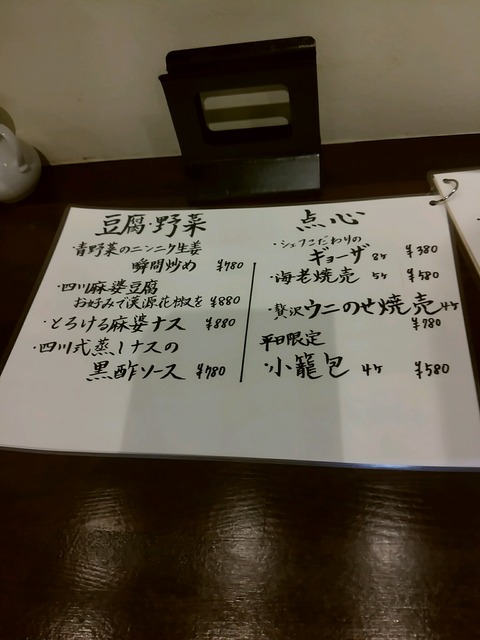 豆腐・野菜
・青野菜のニンニク生姜
瞬間炒め ¥780
・四川麻婆豆腐
お好みで漢源花椒を ¥880
・とろける麻婆ナス ¥880
・四川式蒸しナスの
黒酢ソース ¥780
点心
・シェフこだわりの
ギョーザ 8ヶ ¥380
・海老焼売 5ヶ ¥580
・贅沢ウニのせ焼売 4ケ
¥780
平日限定
・小籠包 4ヶ ¥580